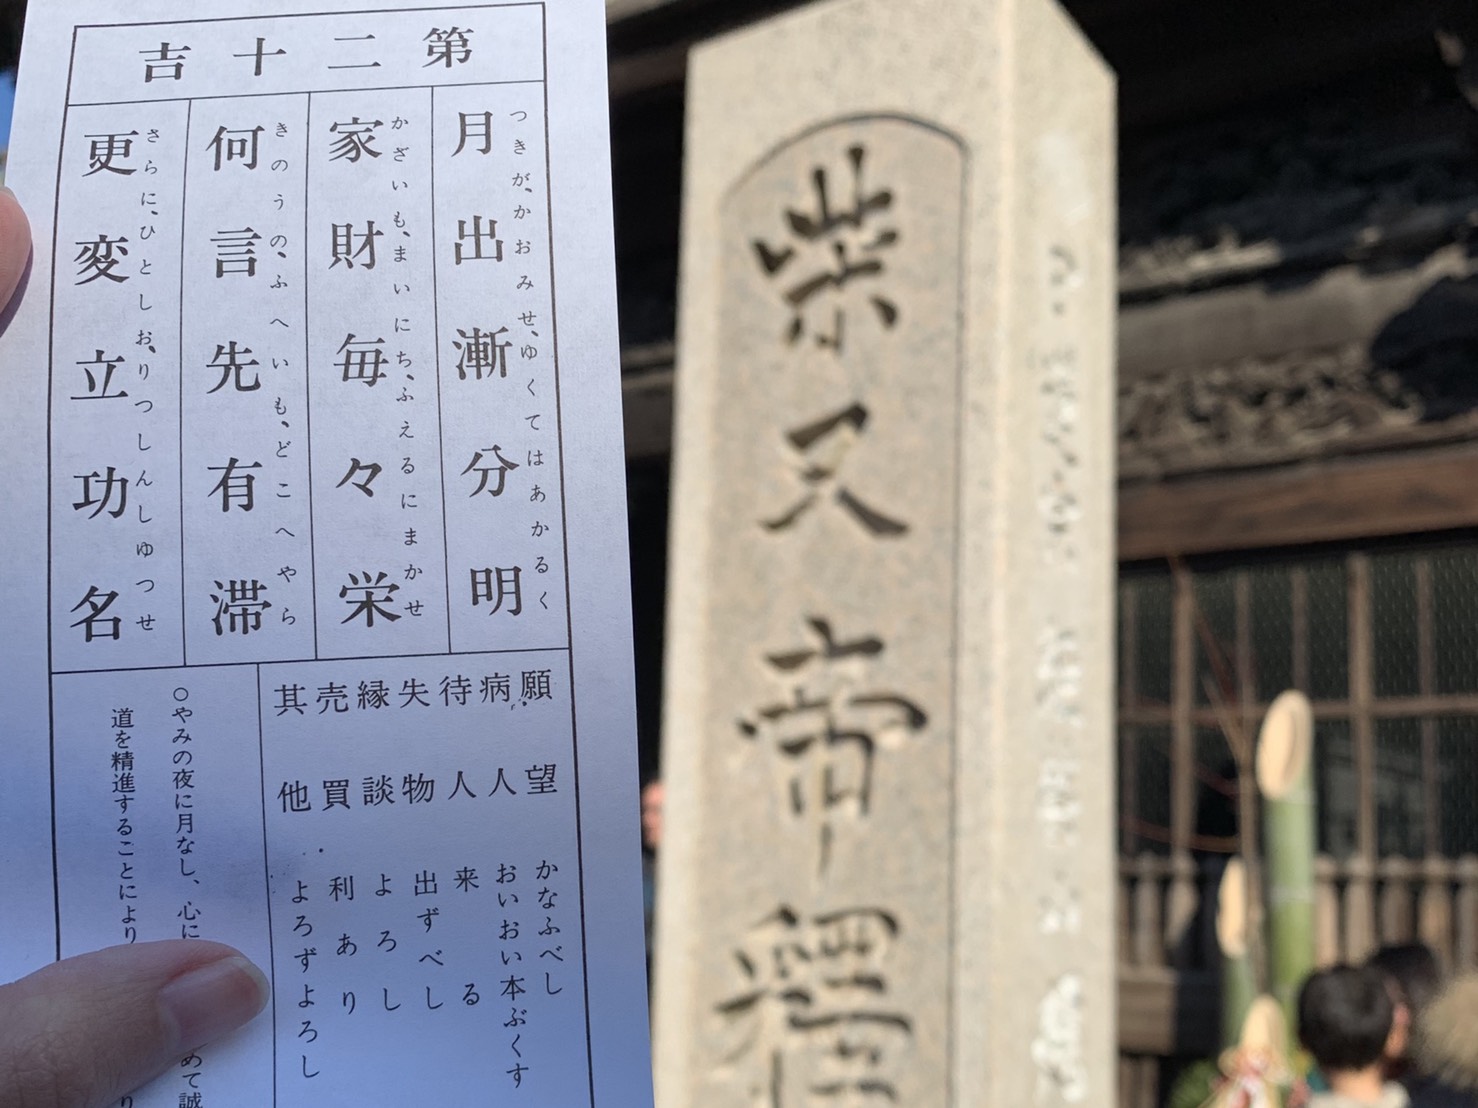 第二十吉
月出漸分明
つきが、かおみせ、ゆくてはあかるく
家財毎々栄
かざいも、まいにち、ふえるにまかせ
何言先有滞
きのうの、ふへいも、どこへやら
更変立功名
さらに、ひとしお、りつしんしゆつせ
願望 かなふべし
病人 おいおい本ぶくす
待人 来る
失物 出ずべし
縁談 よろし
売買 利あり
其他 よろずよろし
○やみの夜に月なし、心に
めて誠
道を精進することにより
り
柴又帝釋